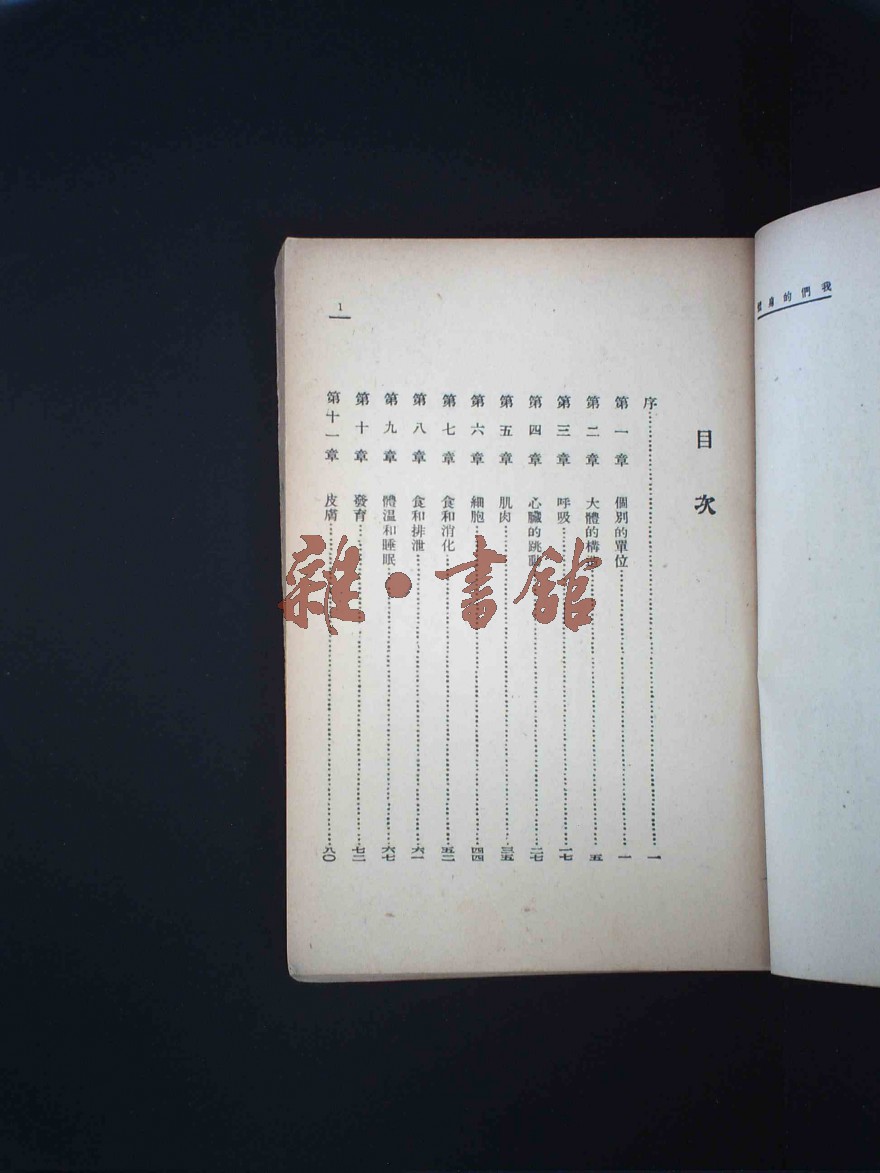 我們的身體
目次
序 一
第一章 個別的單位 一
第二章 大體的構造 五
第三章 呼吸 一七
第四章 心臟的跳動 二七
第五章 肌肉 三五
第六章 細胞 四四
第七章 食和消化 五二
第八章 食和排泄 六一
第九章 體溫和睡眠 六七
第十章 發育 七二
第十一章 皮膚 八〇
1
雜·書館